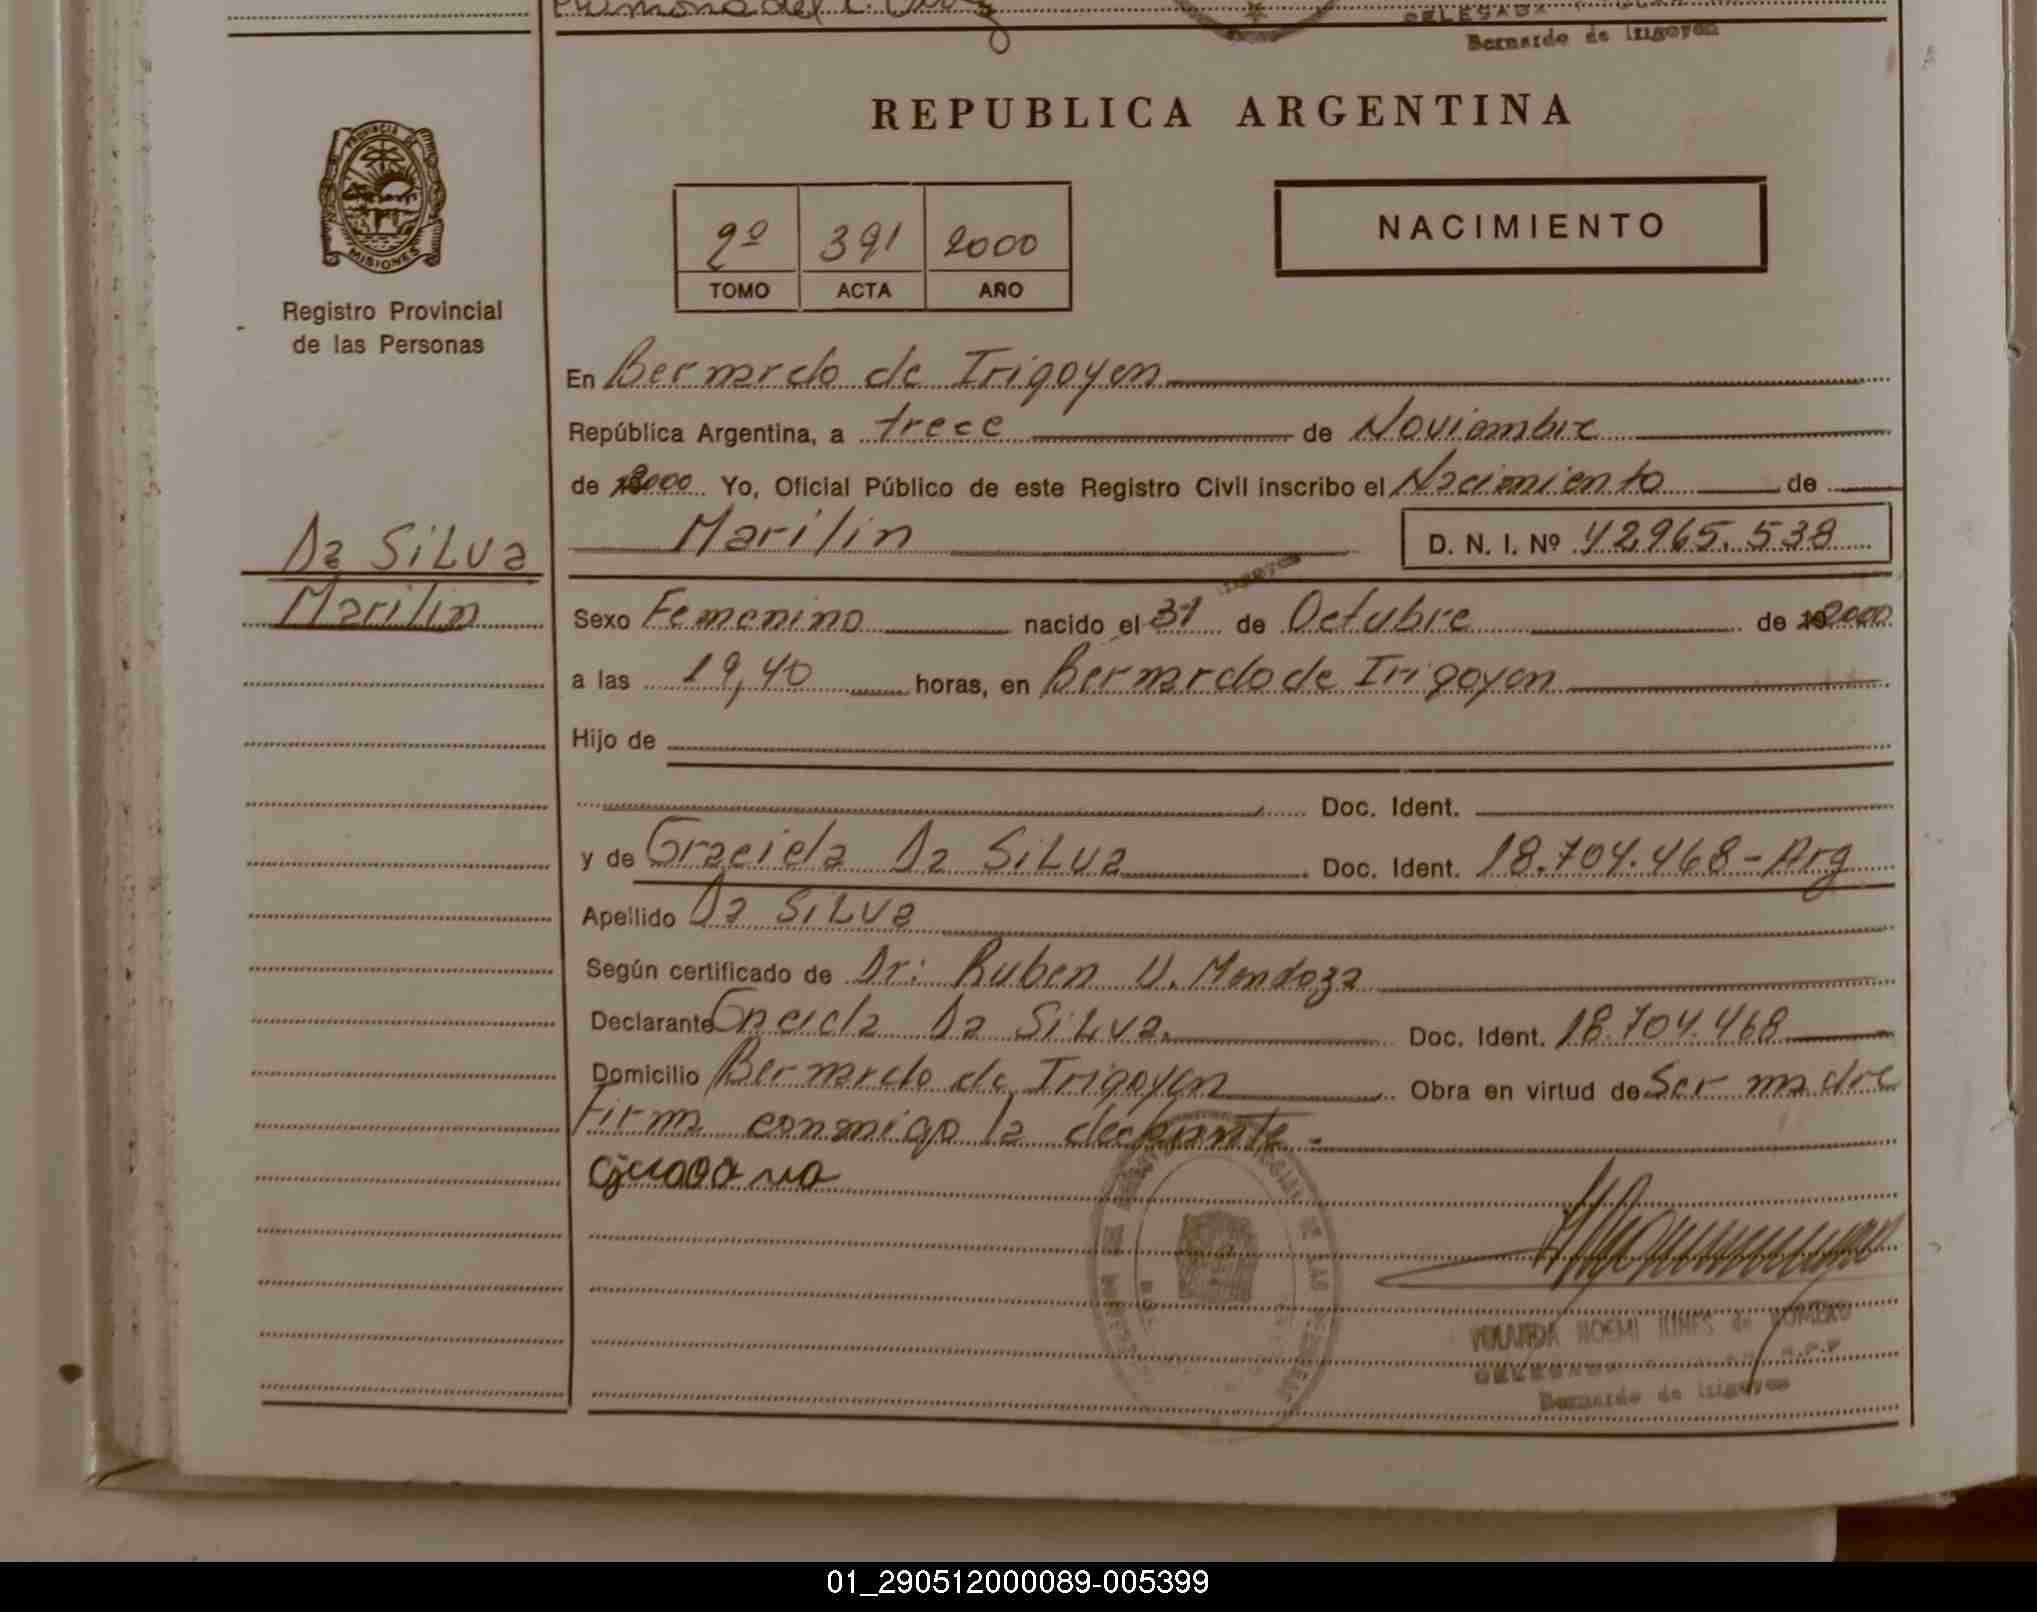 Bernardo de Irigoyen
REPUBLICA ARGENTINA
PROVINCIA DE
MISIONES
Registro Provincial
de las Personas
2º 391 2000
TOMO ACTA AÑO
NACIMIENTO
En Bernardo de Irigoyen
República Argentina, a trece de Noviembre
de 2000 Yo, Oficial Público de este Registro Civil inscribo el Nacimiento de
Marilin D. N. I. Nº 42965.538
Da SiLva
Marilin
Sexo Femenino nacido el 31 de Octubre de 2000
a las 19,40 horas, en Bernardo de Irigoyen
Hijo de
Doc. Ident.
y de Graciela Da SiLva Doc. Ident. 18.704.468-Arg
Apellido Da SiLva
Según certificado de Dr: Ruben U. Mendoza
Declarante Graciela Da SiLva. Doc. Ident. 18.704.468
Domicilio Bernardo de Irigoyen Obra en virtud de Ser madre
Firma conmigo la declarante.
YOLANDA NOEMI de ROMERO
DELEGADA
Bernardo de Irigoyen
01_290512000089-005399